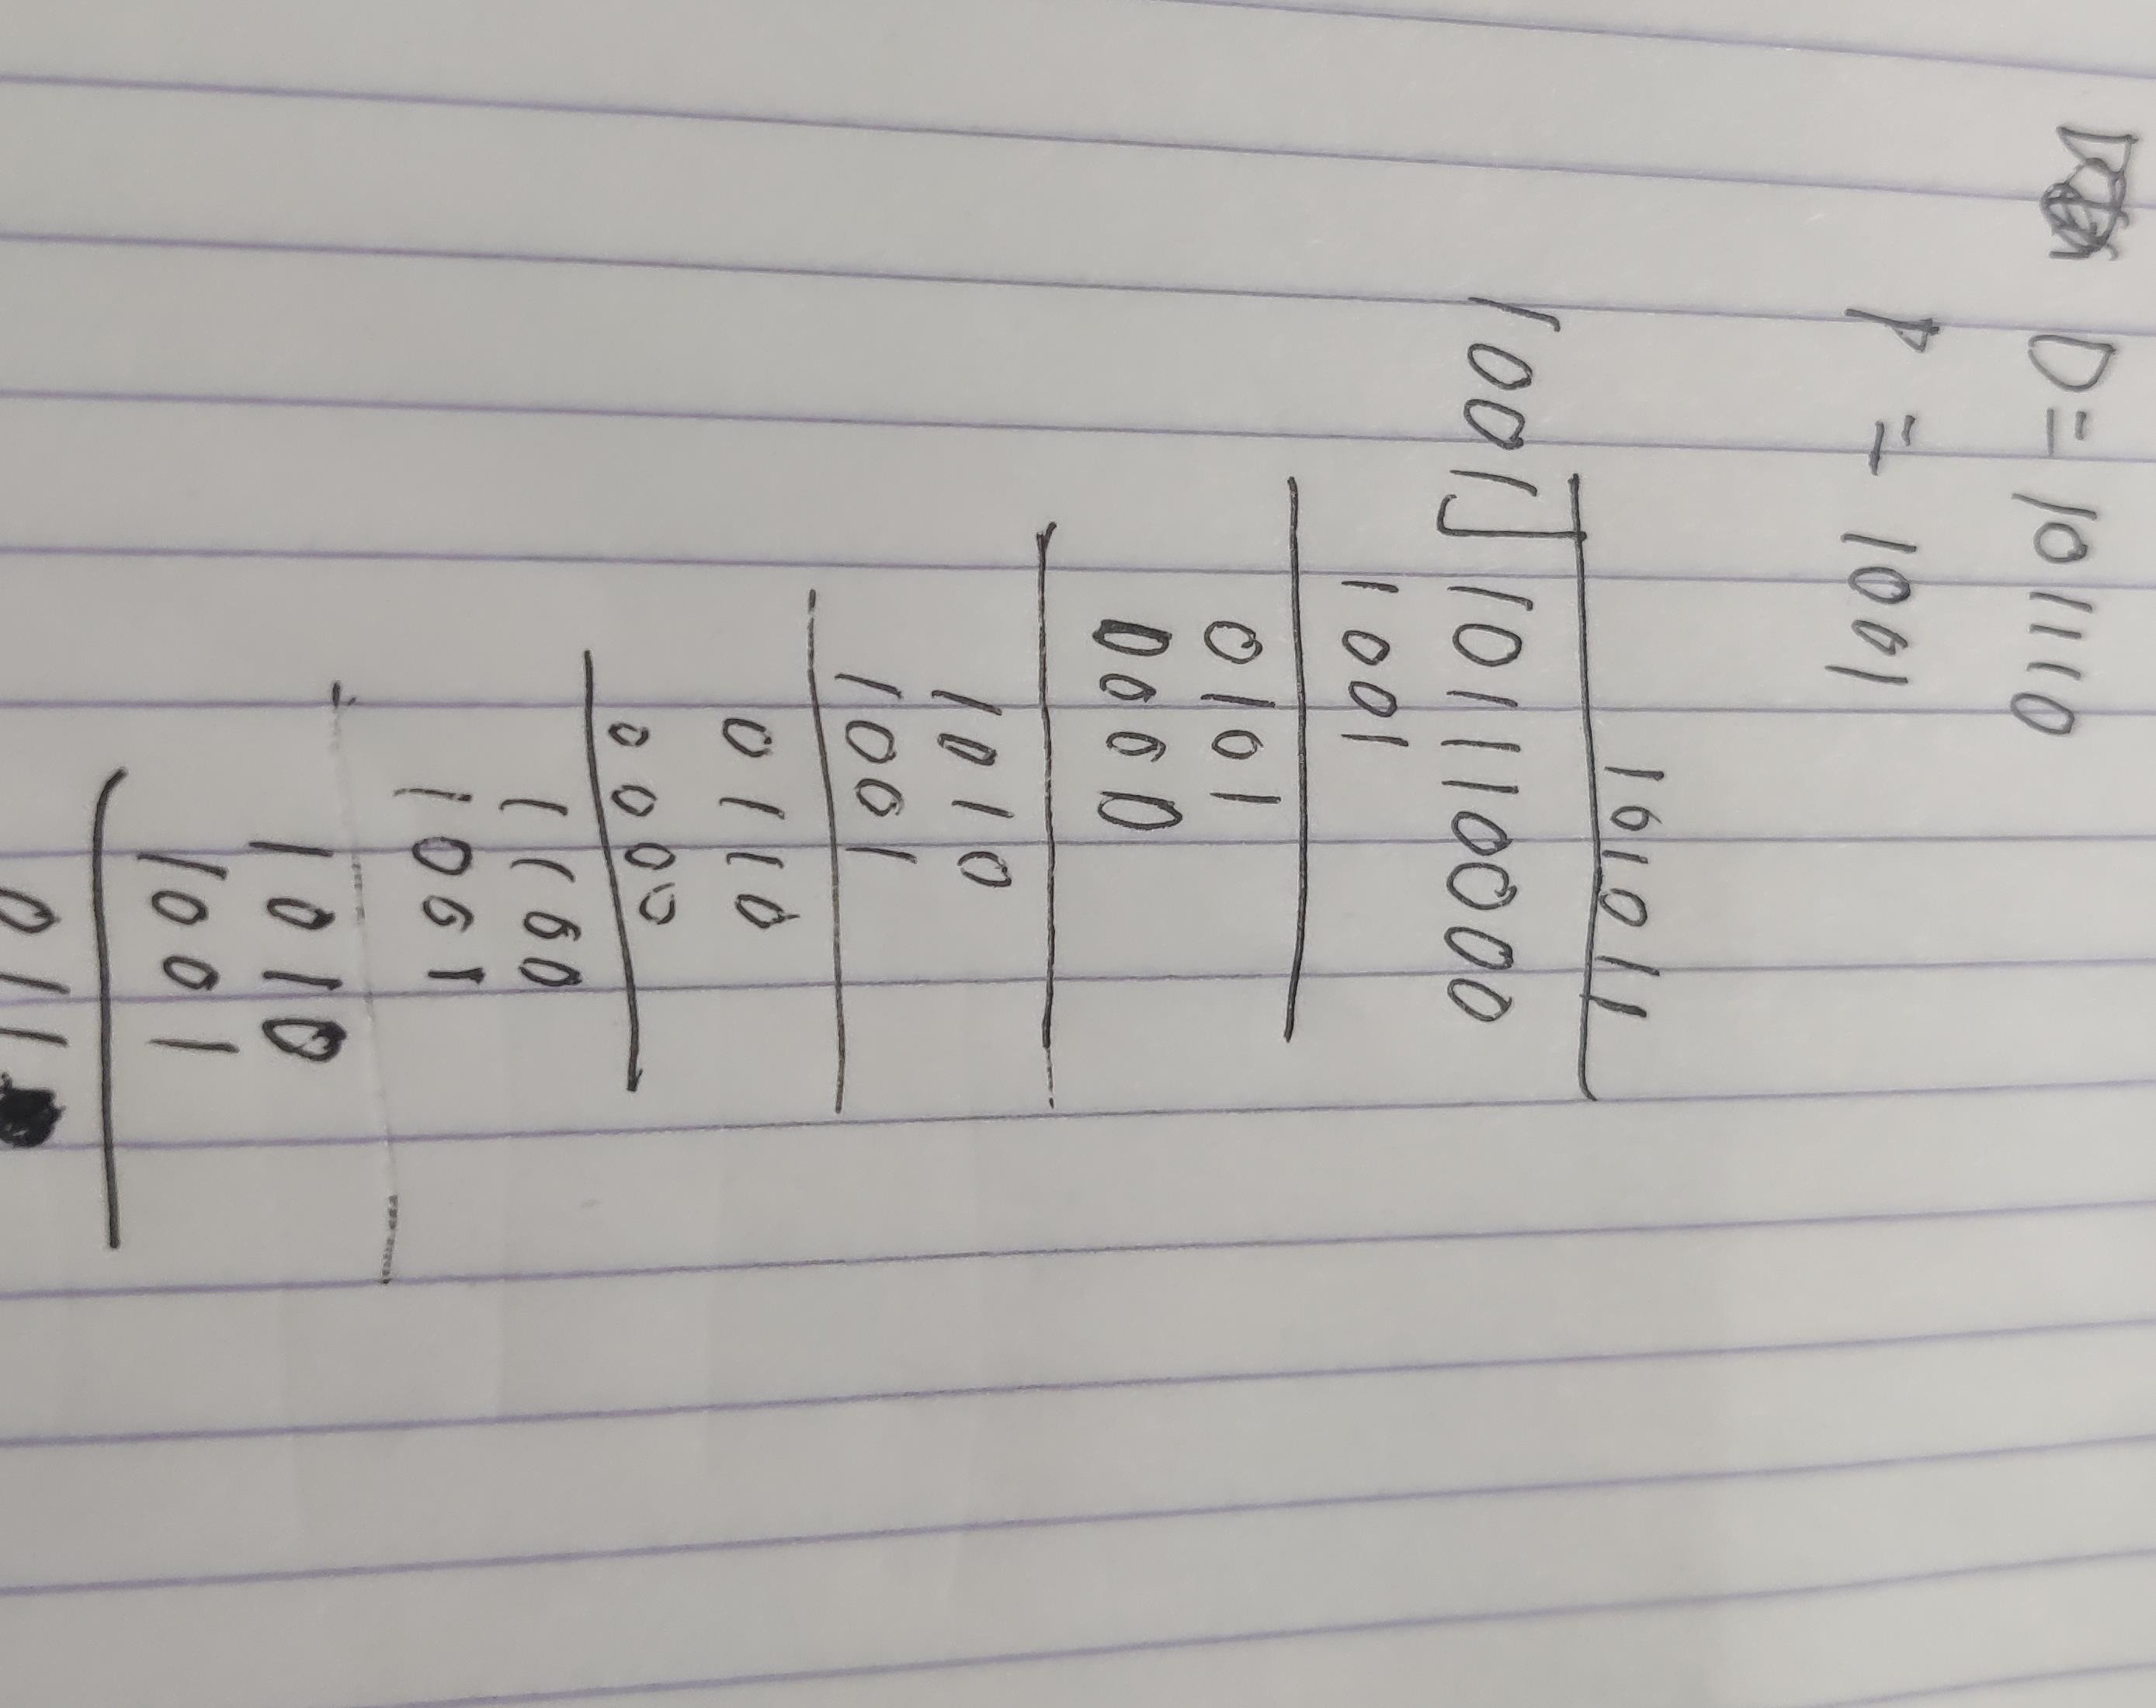 D = 101110
P = 1001
101011
1001 101110000
1001
0101
0000
1010
1001
0110
0000
1100
1001
1010
1001
011